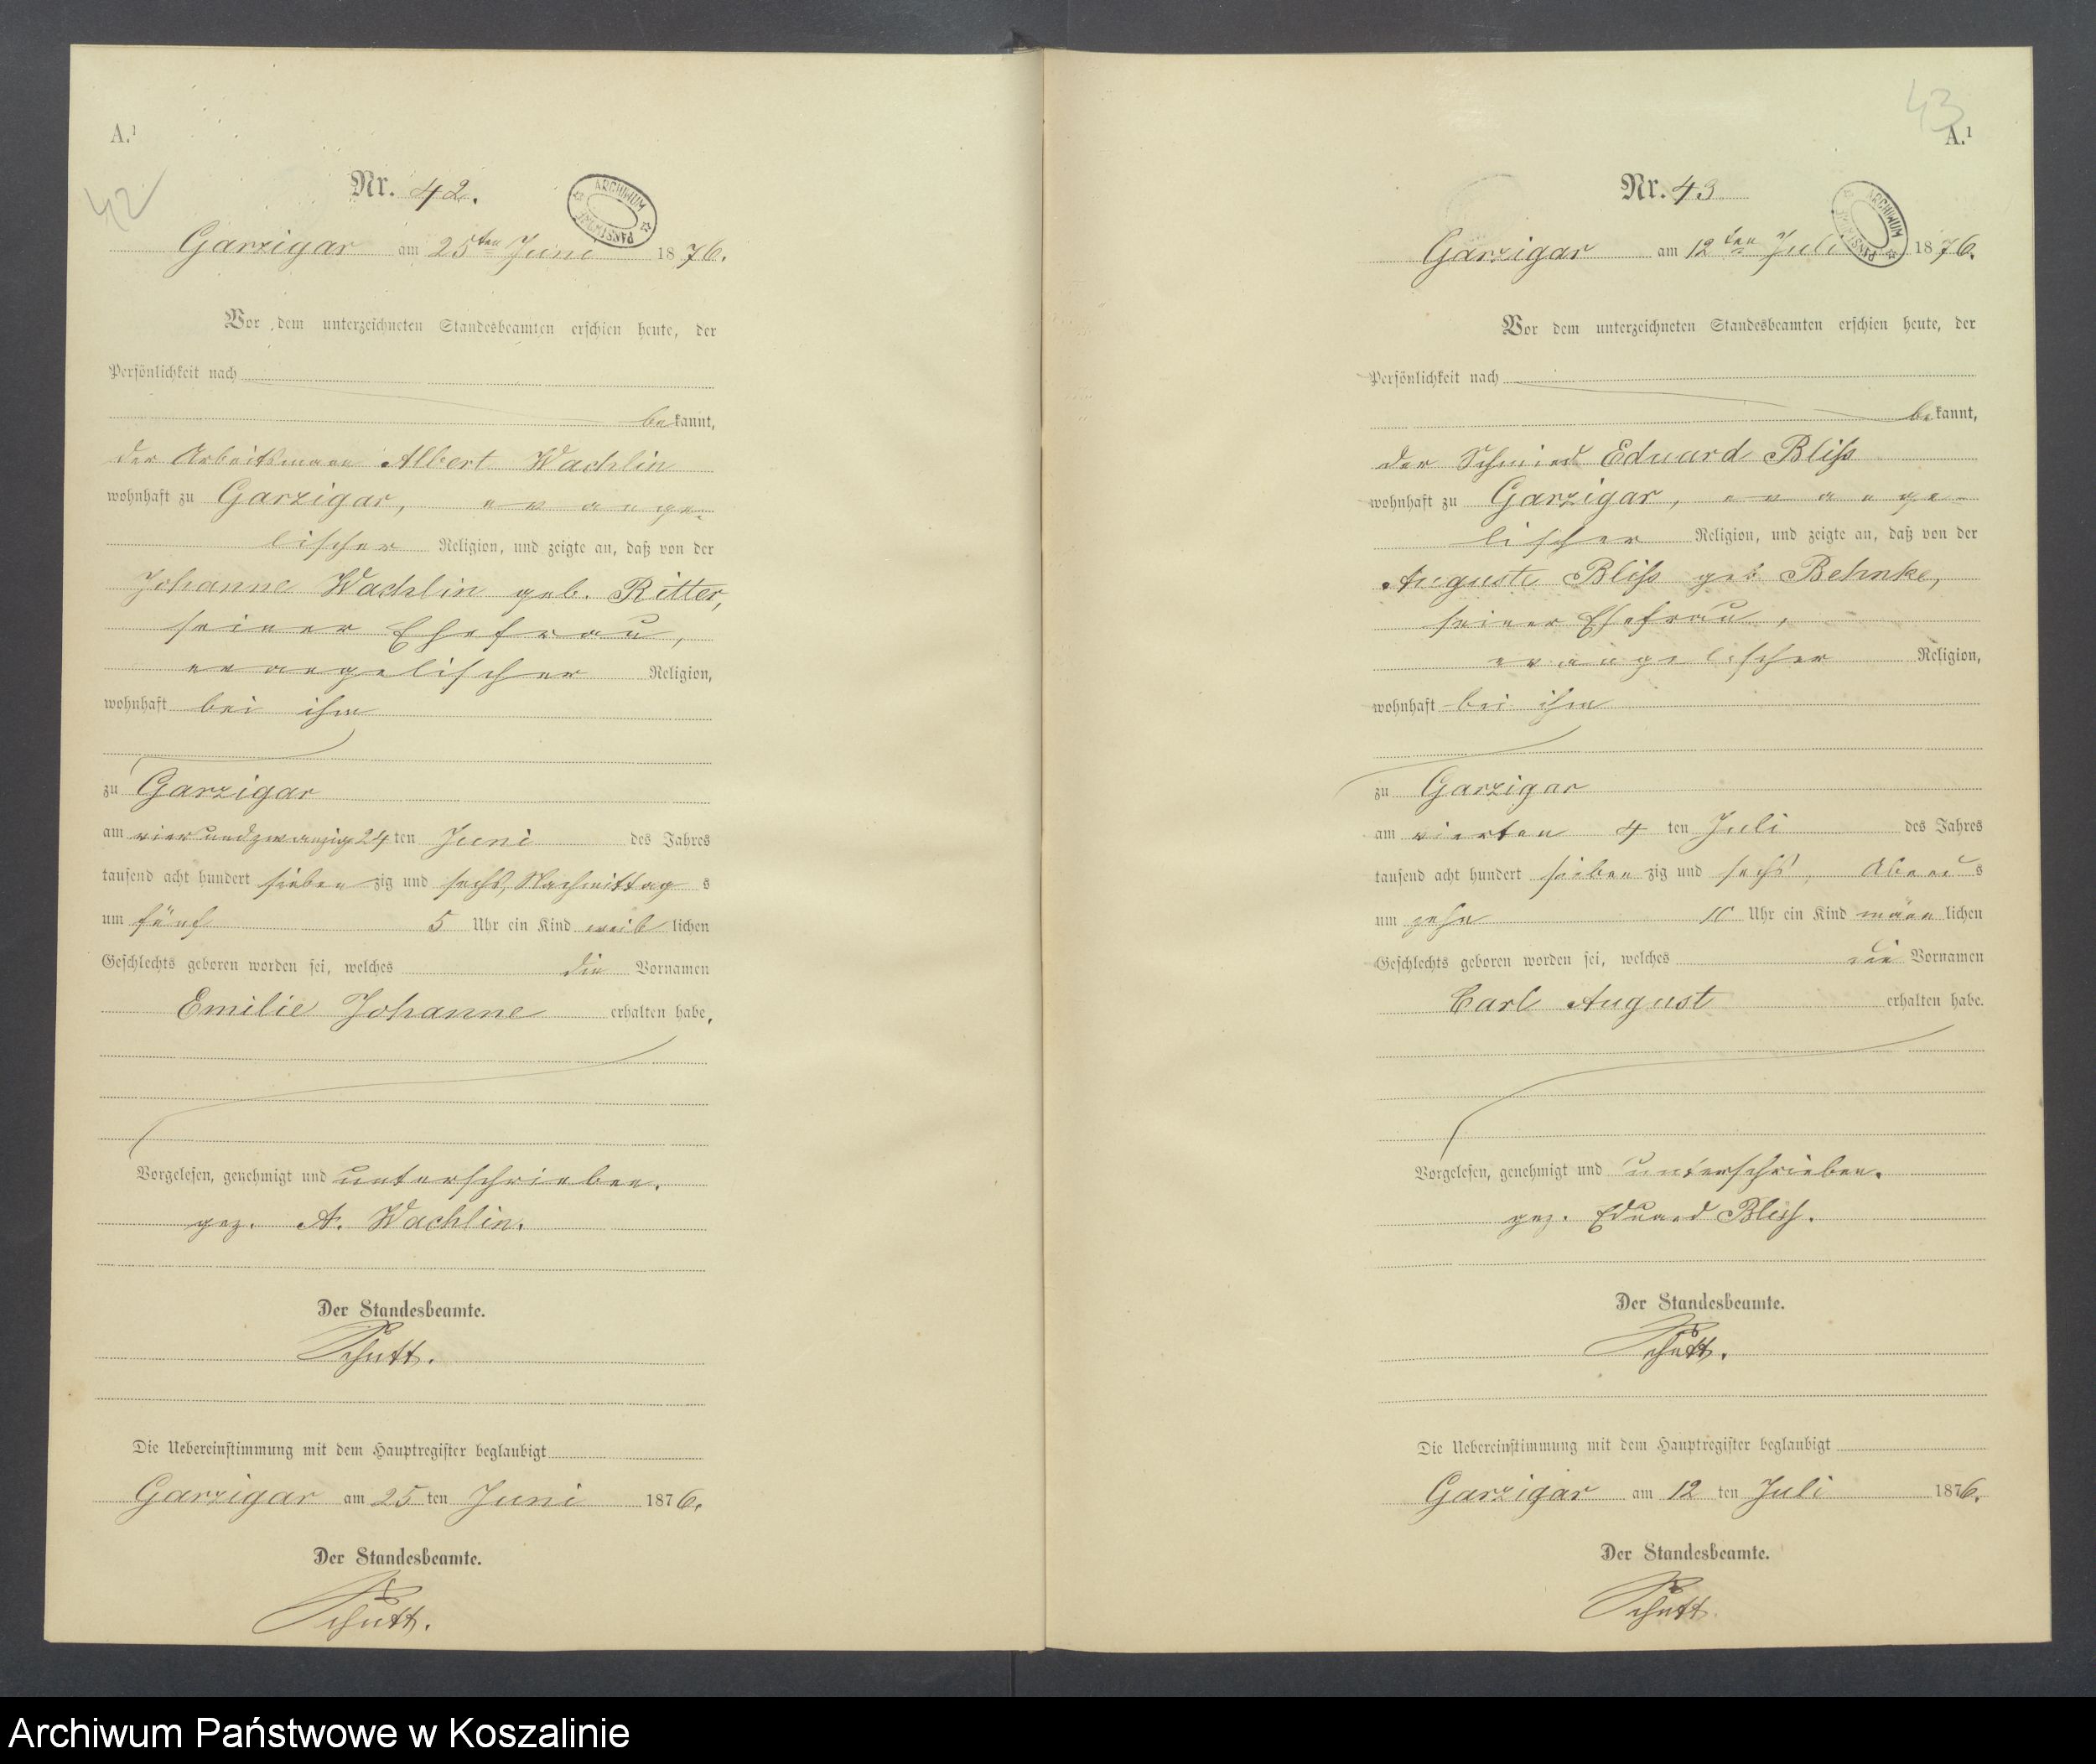 A.¹
42
Nr. 42.
ARCHIWUM PAŃSTWOWE
Garzigar am 25ten Juni 1876.
Vor dem unterzeichneten Standesbeamten erschien heute, der
Persönlichkeit nach
bekannt,
der Arbeitsmann Albert Wachlin
wohnhaft zu Garzigar, evange-
lischer Religion, und zeigte an, daß von der
Johanne Wachlin geb. Ritter,
seiner Ehefrau,
evangelischer Religion,
wohnhaft bei ihm
zu Garzigar
am vierundzwanzig 24 ten Juni des Jahres
tausend acht hundert siebenzig und sechs, Nachmittags
um fünf 5 Uhr ein Kind weiblichen
Geschlechts geboren worden sei, welches die Vornamen
Emilie Johanne erhalten habe.
Vorgelesen, genehmigt und unterschrieben.
gez. A. Wachlin.
Der Standesbeamte.
Schutt.
Die Uebereinstimmung mit dem Hauptregister beglaubigt
Garzigar am 25 ten Juni 1876.
Der Standesbeamte.
Schutt.
43
A.¹
Nr. 43
ARCHIWUM PAŃSTWOWE
Garzigar am 12ten Juli 1876.
Vor dem unterzeichneten Standesbeamten erschien heute, der
Persönlichkeit nach
bekannt,
der Schmied Eduard Bliß
wohnhaft zu Garzigar, evange-
lischer Religion, und zeigte an, daß von der
Auguste Bliß geb. Behnke,
seiner Ehefrau,
evangelischer Religion,
wohnhaft bei ihm
zu Garzigar
am vierten 4 ten Juli des Jahres
tausend acht hundert siebenzig und sechs, Abends
um zehn 10 Uhr ein Kind männlichen
Geschlechts geboren worden sei, welches die Vornamen
Carl August erhalten habe.
Vorgelesen, genehmigt und unterschrieben.
gez. Eduard Bliß.
Der Standesbeamte.
Schutt.
Die Uebereinstimmung mit dem Hauptregister beglaubigt
Garzigar am 12 ten Juli 1876.
Der Standesbeamte.
Schutt.
Archiwum Państwowe w Koszalinie